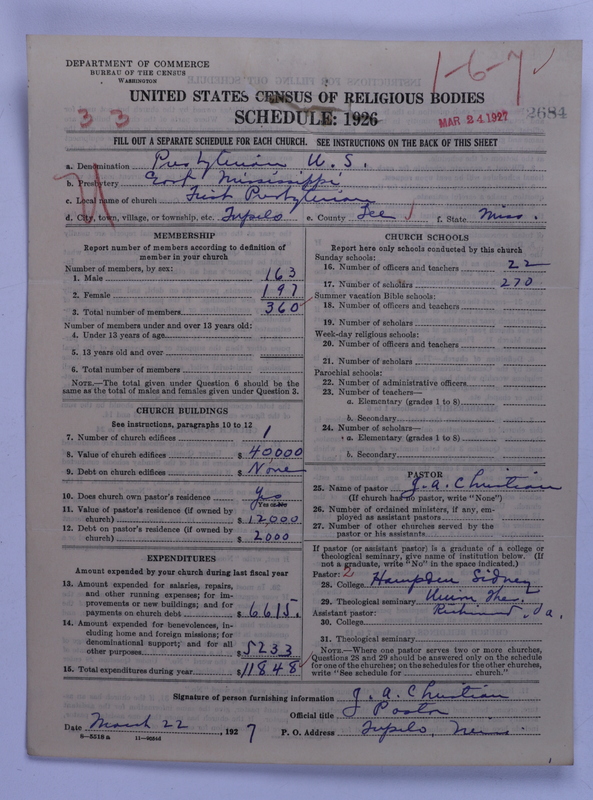 DEPARTMENT OF COMMERCE
BUREAU OF THE CENSUS
WASHINGTON
1-6-7
UNITED STATES CENSUS OF RELIGIOUS BODIES
3 3
SCHEDULE: 1926
MAR 24 1927
2684
FILL OUT A SEPARATE SCHEDULE FOR EACH CHURCH. SEE INSTRUCTIONS ON THE BACK OF THIS SHEET
a. Denomination Presbyterian U. S.
b. Presbytery East Mississippi
c. Local name of church First Presbyterian
d. City, town, village, or township, etc. Tupelo e. County Lee f. State Miss.
MEMBERSHIP
Report number of members according to definition of
member in your church
Number of members, by sex:
1. Male 163
2. Female 197
3. Total number of members 360
Number of members under and over 13 years old:
4. Under 13 years of age
5. 13 years old and over
6. Total number of members
NOTE.—The total given under Question 6 should be the
same as the total of males and females given under Question 3.
CHURCH BUILDINGS
See instructions, paragraphs 10 to 12
7. Number of church edifices 1
8. Value of church edifices $ 40000
9. Debt on church edifices $ None
10. Does church own pastor's residence Yes
Yes or No
11. Value of pastor's residence (if owned by
church) $ 12000
12. Debt on pastor's residence (if owned by
church) $ 2000
EXPENDITURES
Amount expended by your church during last fiscal year
13. Amount expended for salaries, repairs,
and other running expenses; for im-
provements or new buildings; and for
payments on church debt $ 6615.
14. Amount expended for benevolences, in-
cluding home and foreign missions; for
denominational support; and for all
other purposes $ 5233
15. Total expenditures during year $ 11848
CHURCH SCHOOLS
Report here only schools conducted by this church
Sunday schools:
16. Number of officers and teachers 22
17. Number of scholars 270
Summer vacation Bible schools:
18. Number of officers and teachers
19. Number of scholars
Week-day religious schools:
20. Number of officers and teachers
21. Number of scholars
Parochial schools:
22. Number of administrative officers
23. Number of teachers—
a. Elementary (grades 1 to 8)
b. Secondary
24. Number of scholars—
a. Elementary (grades 1 to 8)
b. Secondary
PASTOR
25. Name of pastor J. A. Christian
(If church has no pastor, write "None")
26. Number of ordained ministers, if any, em-
ployed as assistant pastors
27. Number of other churches served by the
pastor or his assistants
If pastor (or assistant pastor) is a graduate of a college or
theological seminary, give name of institution below. (If
not a graduate, write "No" in the space indicated.)
Pastor: 2
28. College Hampden Sidney
29. Theological seminary Union Theo.
Assistant pastor: Richmond, Va.
30. College
31. Theological seminary
NOTE.—Where one pastor serves two or more churches,
Questions 28 and 29 should be answered only on the schedule
for one of the churches; on the schedules for the other churches,
write "See schedule for church."
Signature of person furnishing information J. A. Christian
Official title Pastor
Date March 22, 1927 P. O. Address Tupelo, Miss.
8-5518a 11-9034d